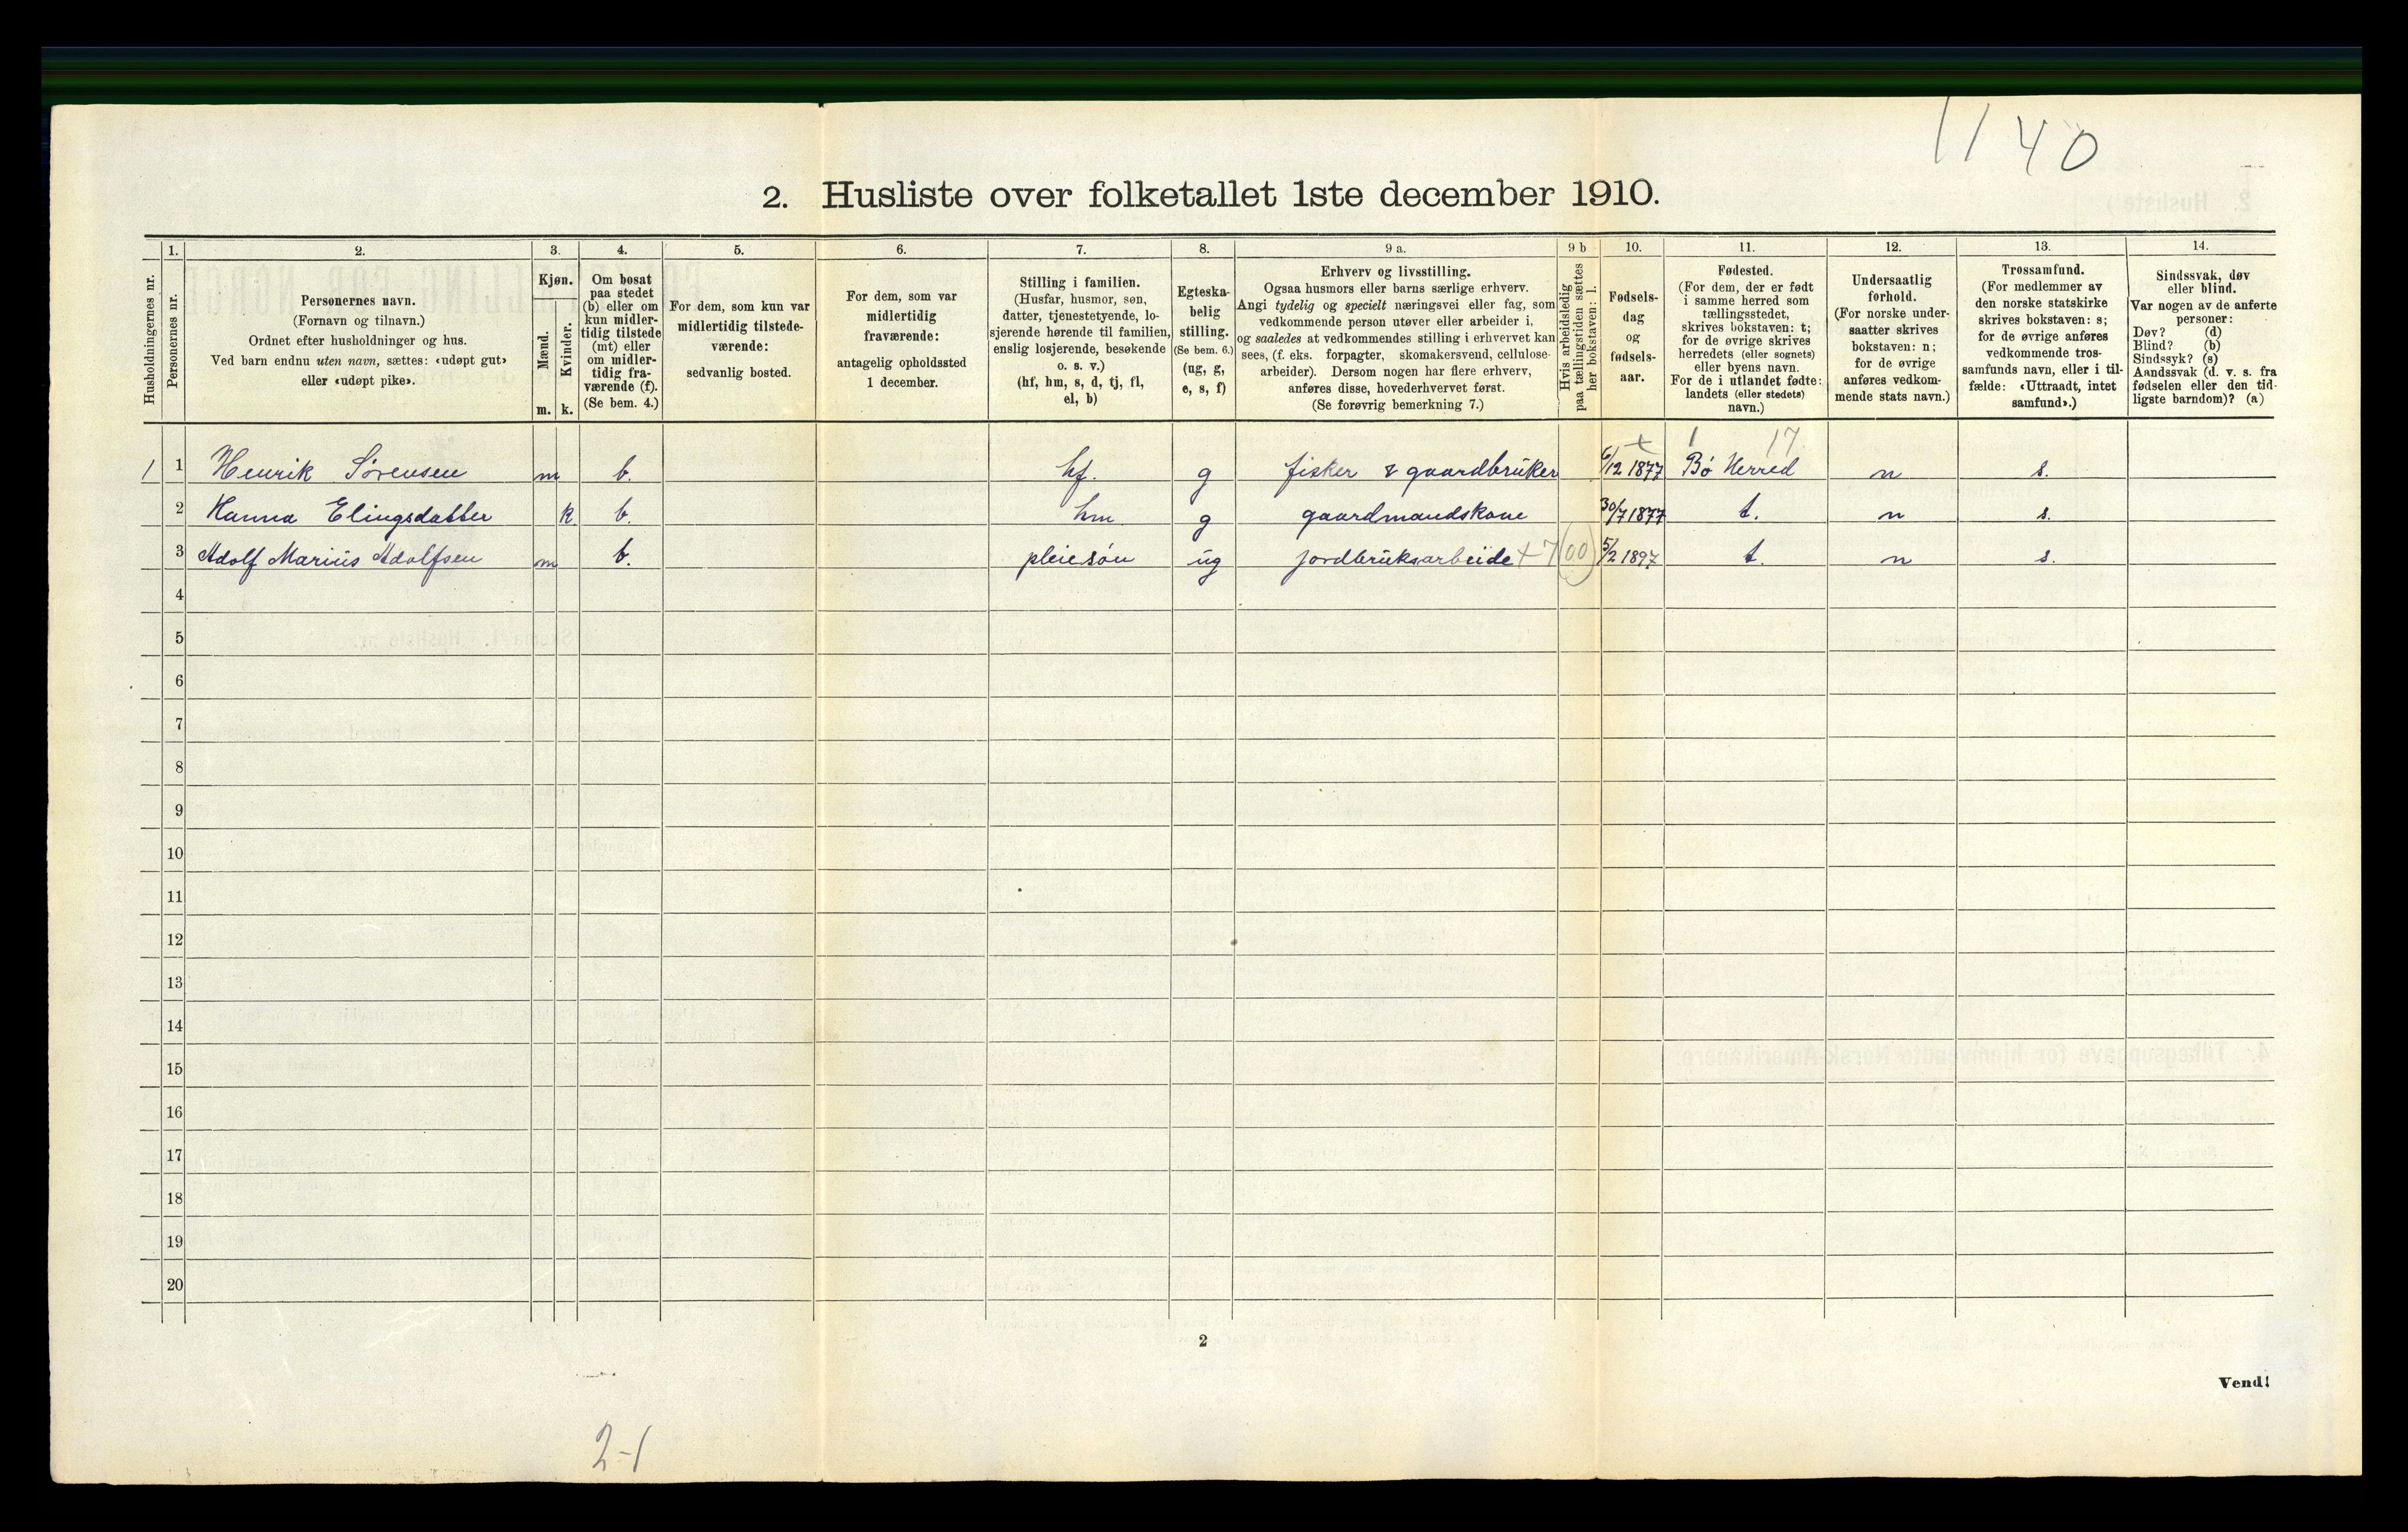 1140
2. Husliste over folketallet 1ste december 1910.
Husholdningernes nr.
1.
Personernes nr.
2.
Personernes navn.
(Fornavn og tilnavn.)
Ordnet efter husholdninger og hus.
Ved barn endnu uten navn, sættes: «udøpt gut»
eller «udøpt pike».
3.
Kjøn.
Mænd.
Kvinder.
m. k.
4.
Om bosat
paa stedet
(b) eller om
kun midler-
tidig tilstede
(mt) eller
om midler-
tidig fra-
værende (f).
(Se bem. 4.)
5.
For dem, som kun var
midlertidig tilstede-
værende:
sedvanlig bosted.
6.
For dem, som var
midlertidig
fraværende:
antagelig opholdssted
1 december.
7.
Stilling i familien.
(Husfar, husmor, søn,
datter, tjenestetyende, lo-
sjerende hørende til familien,
enslig losjerende, besøkende
o. s. v.)
(hf, hm, s, d, tj, fl,
el, b)
8.
Egteska-
belig
stilling.
(Se bem. 6.)
(ug, g,
e, s, f)
9 a.
Erhverv og livsstilling.
Ogsaa husmors eller barns særlige erhverv.
Angi tydelig og specielt næringsvei eller fag, som
vedkommende person utøver eller arbeider i,
og saaledes at vedkommendes stilling i erhvervet kan
sees, (f. eks. forpagter, skomakersvend, cellulose-
arbeider). Dersom nogen har flere erhverv,
anføres disse, hovederhvervet først.
(Se forøvrig bemerkning 7.)
9 b
Hvis arbeidsledig
paa tællingstiden sættes
her bokstaven: l.
10.
Fødsels-
dag
og
fødsels-
aar.
11.
Fødested.
(For dem, der er født
i samme herred som
tællingsstedet,
skrives bokstaven: t;
for de øvrige skrives
herredets (eller sognets)
eller byens navn.
For de i utlandet fødte:
landets (eller stedets)
navn.)
12.
Undersaatlig
forhold.
(For norske under-
saatter skrives
bokstaven: n;
for de øvrige
anføres vedkom-
mende stats navn.)
13.
Trossamfund.
(For medlemmer av
den norske statskirke
skrives bokstaven: s;
for de øvrige anføres
vedkommende tros-
samfunds navn, eller i til-
fælde: «Uttraadt, intet
samfund».)
14.
Sindssvak, døv
eller blind.
Var nogen av de anførte
personer:
Døv? (d)
Blind? (b)
Sindssyk? (s)
Aandssvak (d. v. s. fra
fødselen eller den tid-
ligste barndom)? (a)
+ 1 17
1 1 Henrik Sørensen m b. hf. g fisker & gaardbruker 6/12 1877 Bø Herred n s.
2 Hanna Elingsdatter k b. hm g gaardmandskone 30/7 1877 t. n s.
3 Adolf Marius Adolfsen m b. pleiesøn ug jordbruksarbeide +7 (00) 5/2 1897 t. n s.
4
5
6
7
8
9
10
11
12
13
14
15
16
17
18
19
20
2
Vend!
2-1